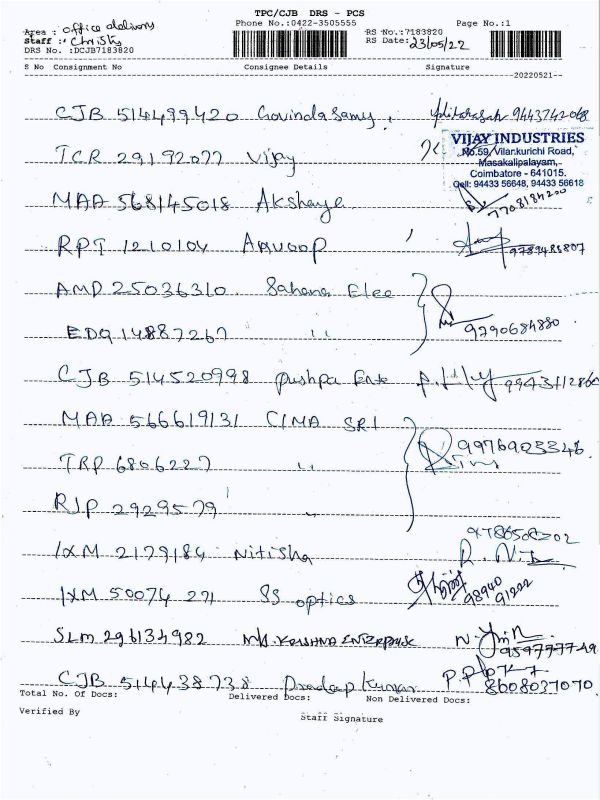 TPC/CJB DRS - PCS
Phone No.:0422-3505555 Page No.:1
Area : office delivery
Staff : Christy
DRS No. :DCJB7183820
RS No.:7183820
RS Date: 23/05/22
S No Consignment No Consignee Details Signature
20220521
CJB 514499420 Govindasamy 9443742068
VIJAY INDUSTRIES
No.59, Vilankurichi Road,
Masakalipalayam,
Coimbatore - 641015.
Cell: 94433 56648, 94433 56618
TCR 29192077 Vijay
MAA 568145018 Akshaya 7708184200
RPT 1210104 Anuoop 9789488807
AMD 25036310 Sahana Elec
EDQ 14887267 " 9790684880
CJB 514520998 pushpa Ente
MAA 566619131 CIMA SRI
TRP 6806227 "
RJP 2929579 "
IXM 2179184 Nitisha
IXM 50074 271 SS optics 98940 91222
SLM 296134982 M/s. KRISHNA ENTERPRISE
CJB 514438738 Pradeep Kumar 8608037070
Total No. Of Docs: Delivered Docs: Non Delivered Docs:
Verified By Staff Signature